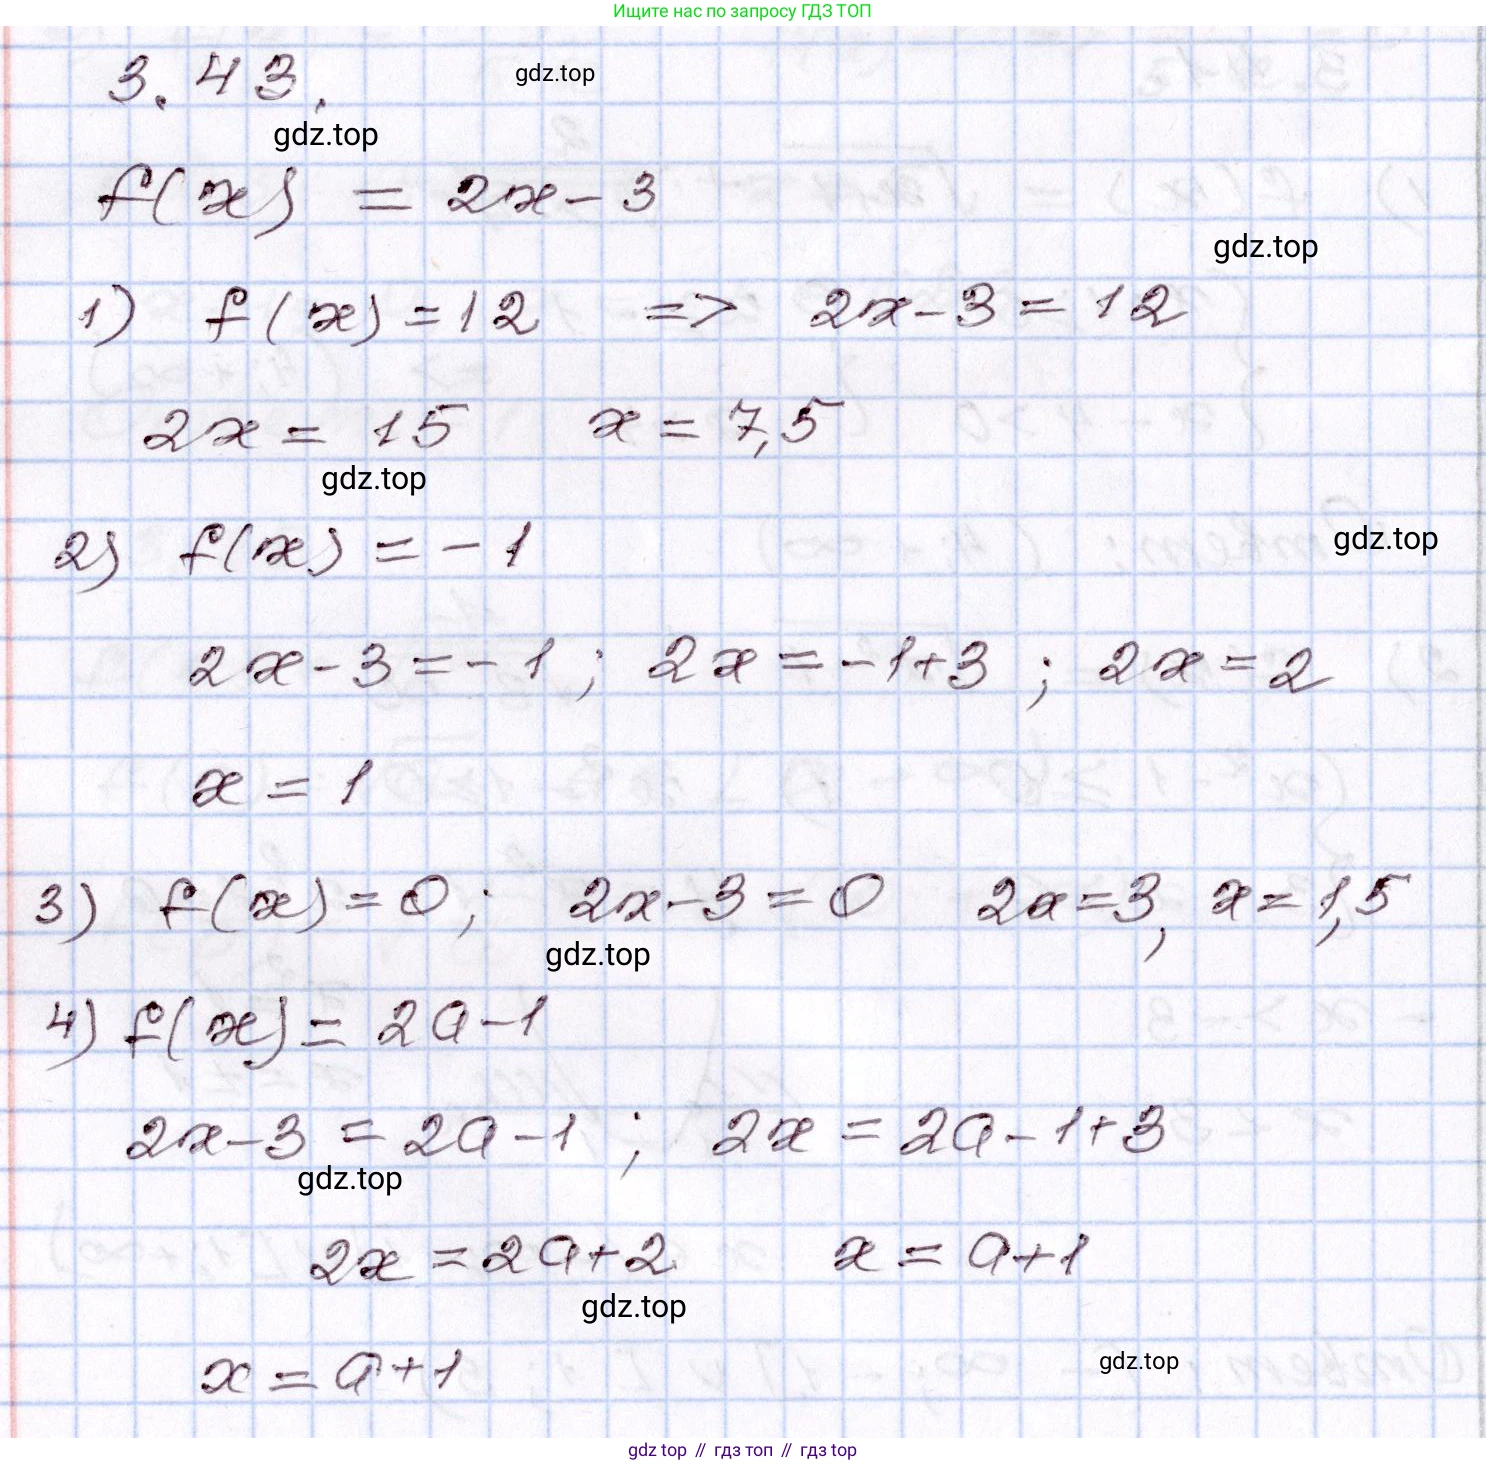 Ищите нас по запросу ГДЗ ТОП
3.43.
gdz.top
gdz.top
f(x) = 2x - 3
gdz.top
1) f(x) = 12 => 2x - 3 = 12
2x = 15 x = 7,5
gdz.top
2) f(x) = -1
gdz.top
2x - 3 = -1 ; 2x = -1+3 ; 2x = 2
x = 1
3) f(x) = 0; 2x - 3 = 0 2x = 3, x = 1,5
gdz.top
4) f(x) = 2a - 1
2x - 3 = 2a - 1 ; 2x = 2a - 1 + 3
gdz.top
2x = 2a + 2 x = a + 1
gdz.top
x = a + 1
gdz.top
gdz top // гдз топ // gdz top